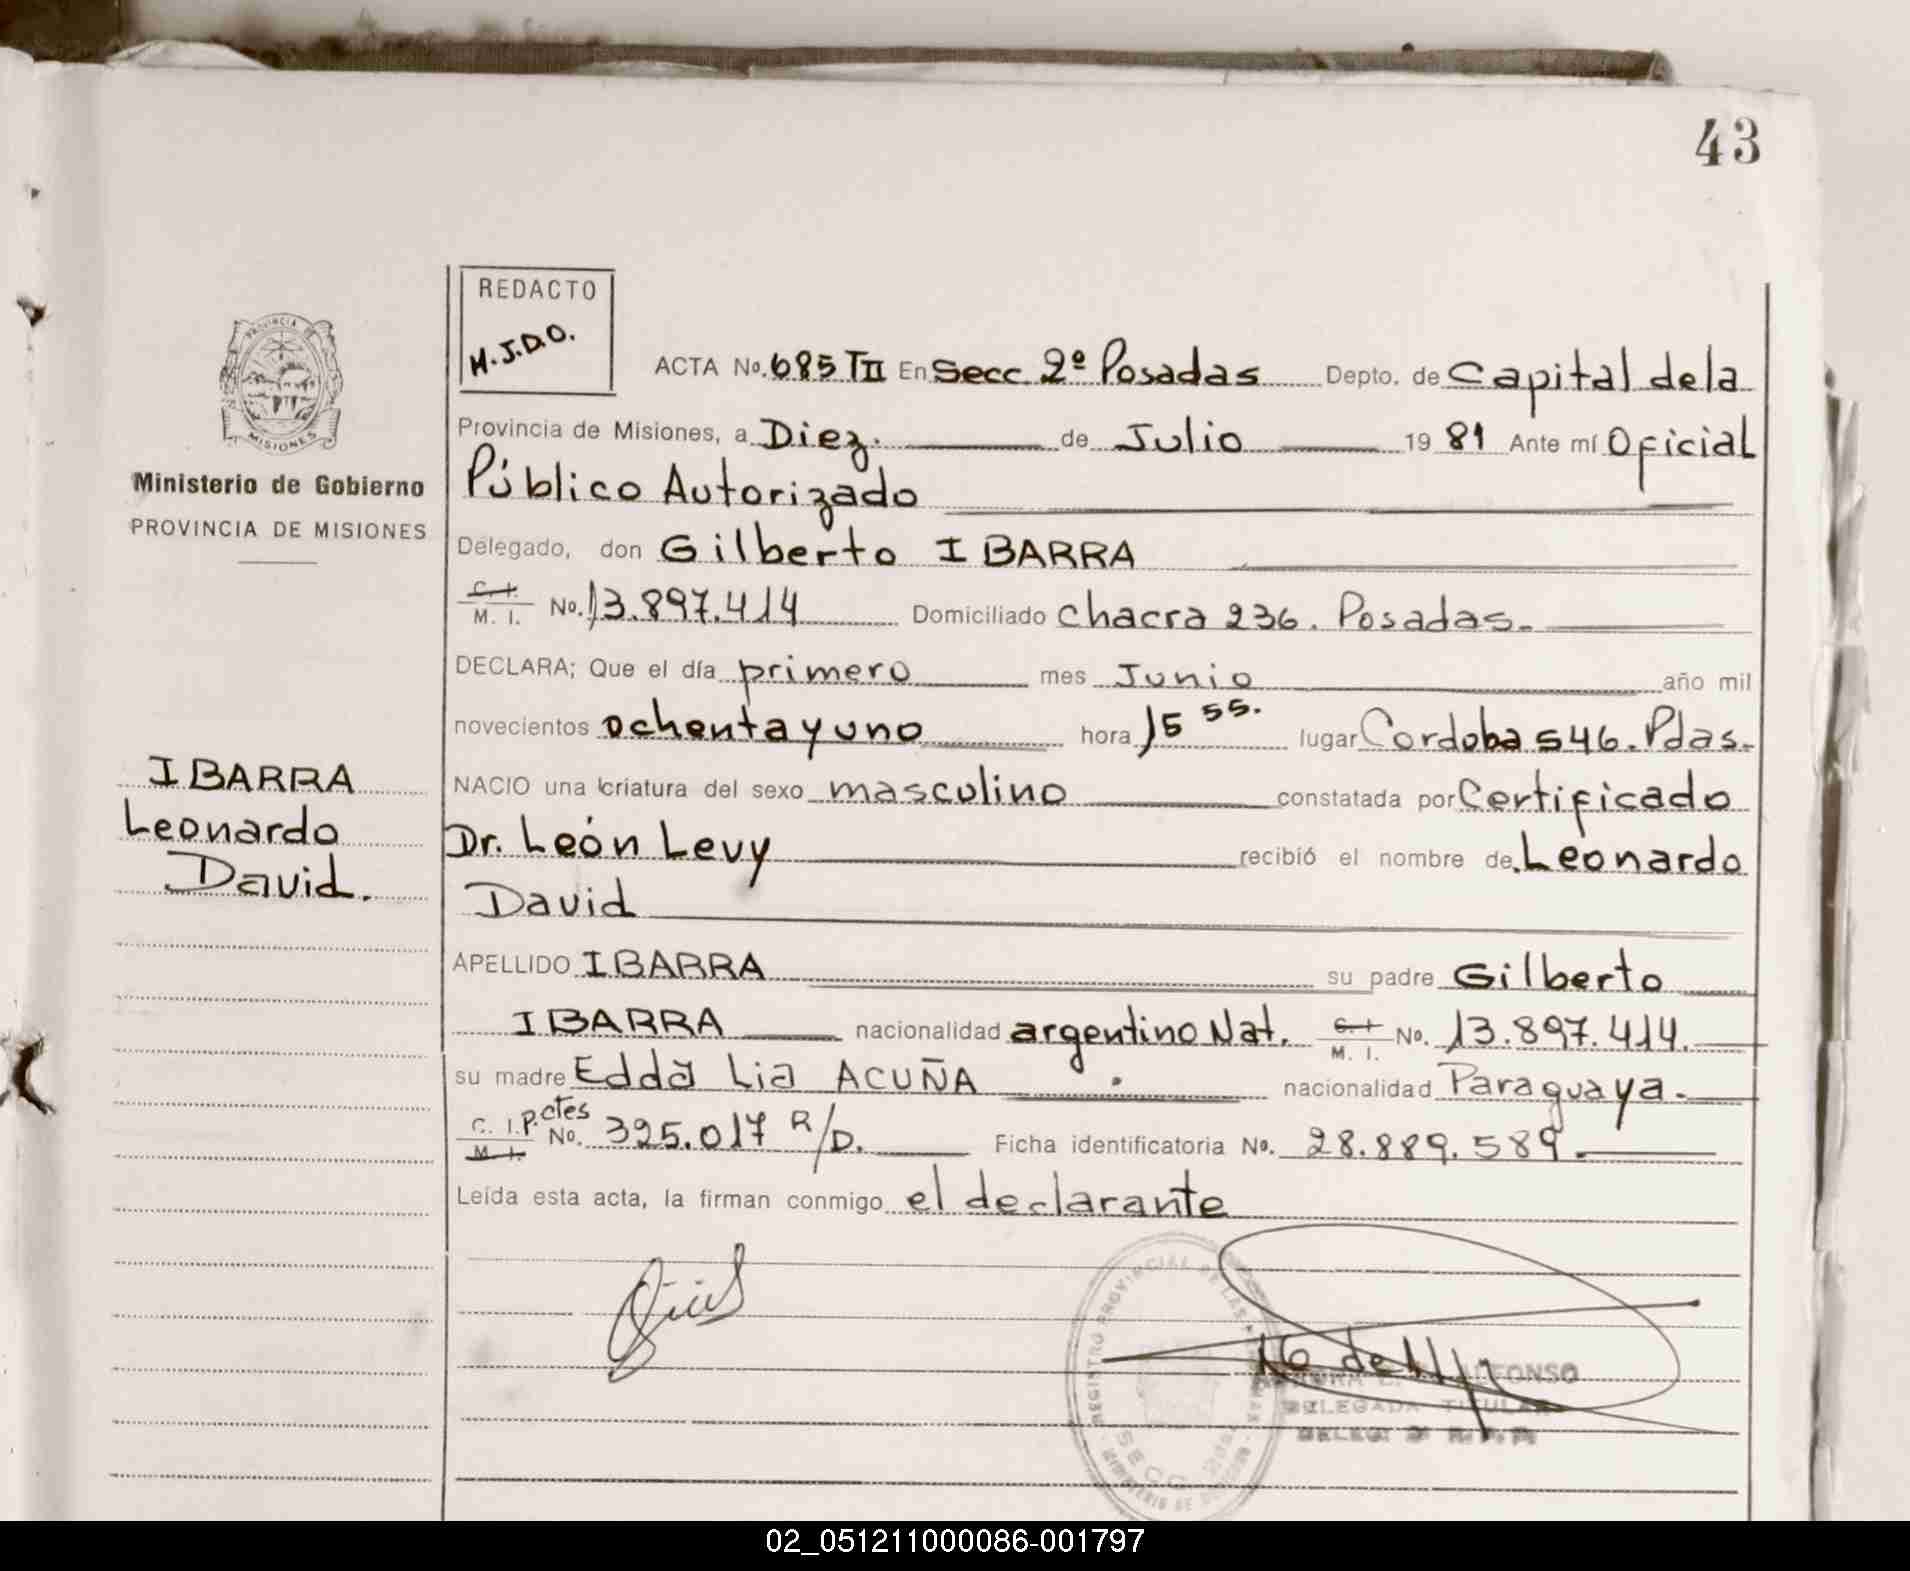 43
REDACTO
M.J.D.O.
PROVINCIA DE
MISIONES
Ministerio de Gobierno
PROVINCIA DE MISIONES
ACTA No. 685 TII En Secc 2º Posadas Depto. de Capital dela
Provincia de Misiones, a Diez. de Julio 19 81 Ante mí Oficial
Público Autorizado
Delegado, don Gilberto IBARRA
C. I.
M. I. No. 13.897.414 Domiciliado Chacra 236. Posadas.
DECLARA; Que el día primero mes Junio año mil
novecientos ochenta y uno hora 15 55. lugar Cordoba 546. Pdas.
NACIO una criatura del sexo masculino constatada por Certificado
Dr. León Levy recibió el nombre de Leonardo
David
APELLIDO IBARRA su padre Gilberto
IBARRA nacionalidad argentino Nat. C. I. M. I. No. 13.897.414.
su madre Edda Lia ACUÑA nacionalidad Paraguaya.
C. I. P. ctes M. I. No. 325.017 R/D. Ficha identificatoria No. 28.889.589.
Leída esta acta, la firman conmigo el declarante
IBARRA
Leonardo
David.
REGISTRO PROVINCIAL DE LAS
SECC
DELEGADA TITULAR
02_051211000086-001797